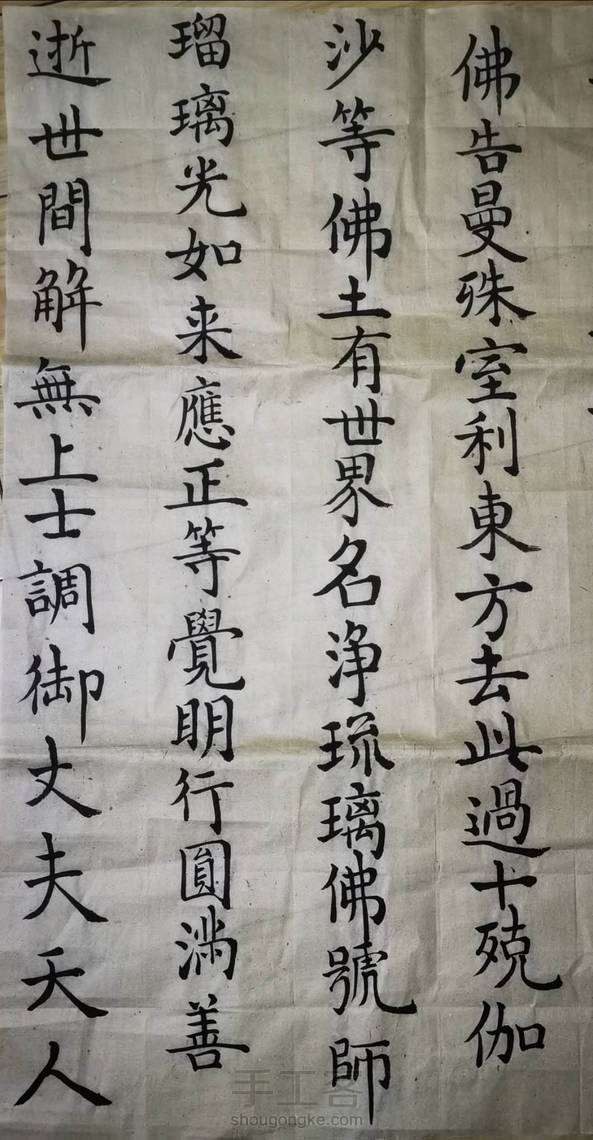 佛告曼殊室利東方去此過十殑伽
沙等佛土有世界名浄琉璃佛號師
瑠璃光如来應正等覺明行圓滿善
逝世間解無上士調御丈夫天人
手工客
shougongke.com